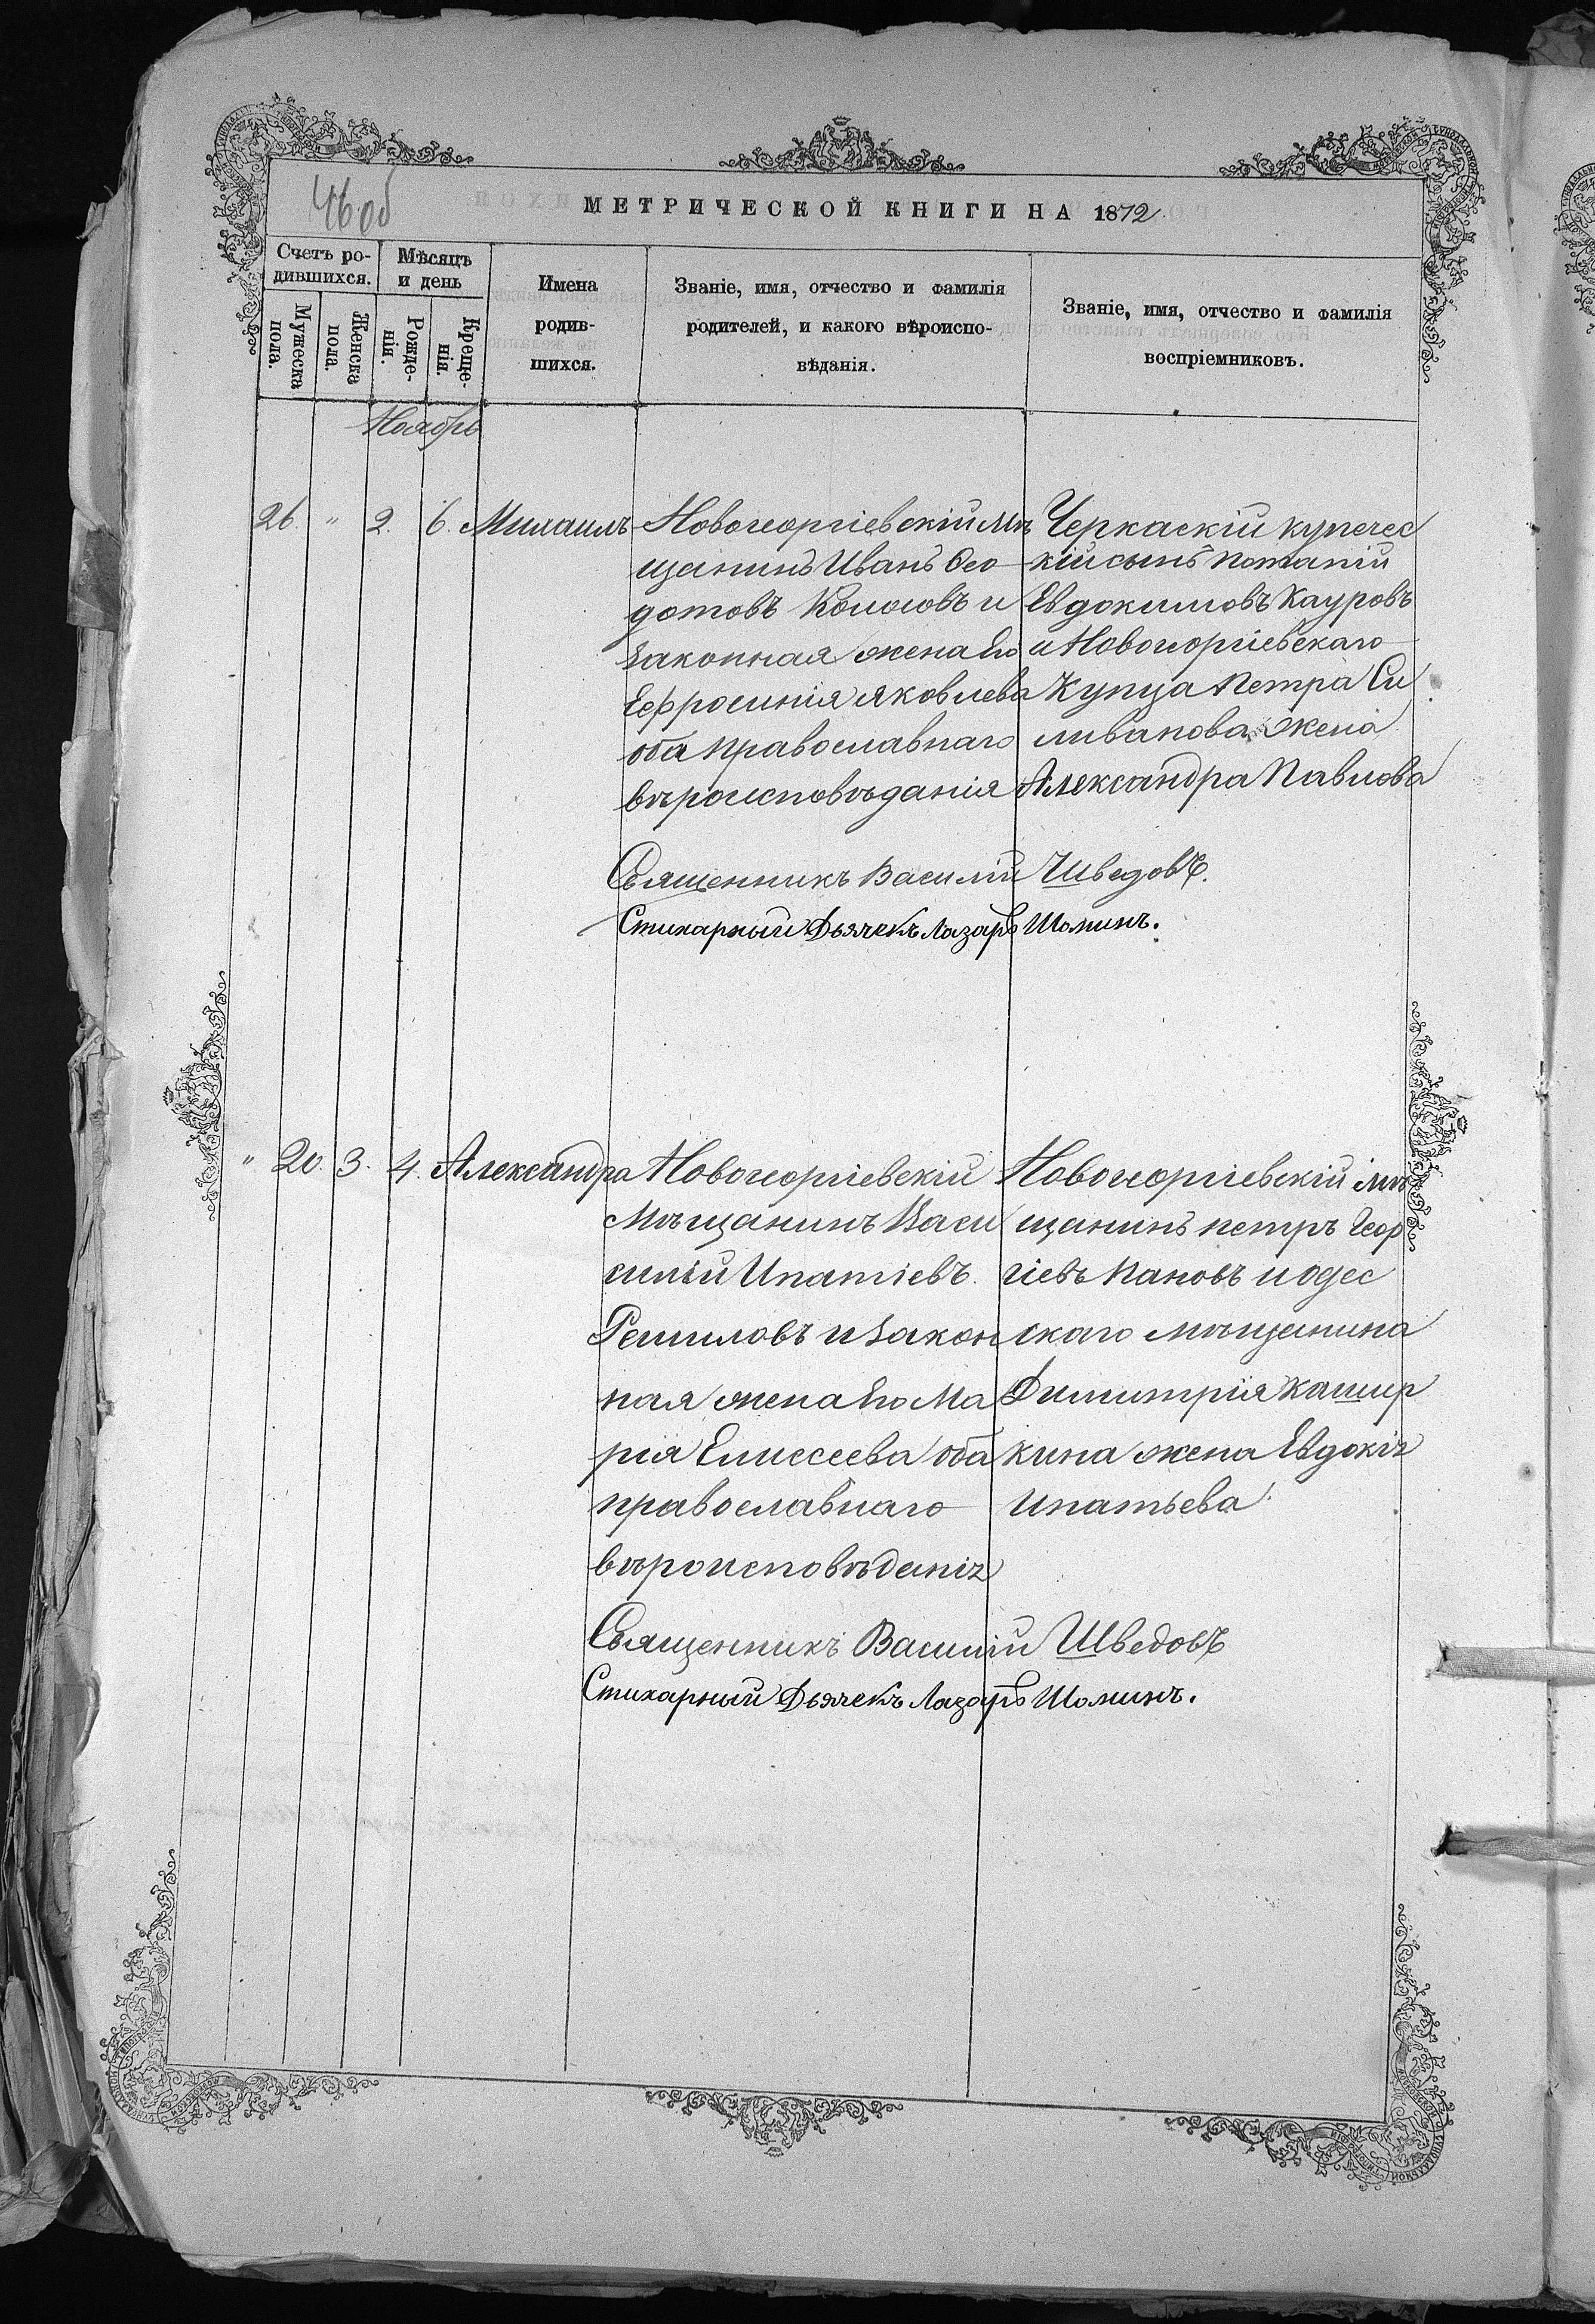 46 об
МЕТРИЧЕСКОЙ КНИГИ НА 1872
Счетъ ро-
дившихся.
Мѣсяцъ
и день
Мужеска
пола.
Женска
пола.
Рожде-
нія.
Креще-
нія.
Имена
родив-
шихся.
Званіе, имя, отчество и фамилія
родителей, и какого вѣроиспо-
вѣданія.
Званіе, имя, отчество и фамилія
воспріемниковъ.
Ноябрь
26. " 2. 6. Михаилъ
Новогеоргіевскій мѣ
щанинъ Иванъ Ѳео
дотовъ Колосовъ и
законная жена Его
Ефросинія Яковлева
оба православнаго
вѣроисповѣданія
Черкаскій купечес
кій сынъ Потапій
Евдокимовъ Кауровъ
и Новогеоргіевскаго
Купца Петра Си
ливанова жена
Александра Павлова
Священникъ Василій Шведовъ.
Стихарный Дьячекъ Лазарь Шоминъ.
" 20. 3. 4. Александра
Новогеоргіевскій
Мѣщанинъ Васи
силій Ипатіевъ
Решиловъ и закон
ная жена Его Ма
рія Елисеева оба
православнаго
вѣроисповѣданія
Новогеоргіевскій мѣ
щанинъ петръ Геор
гіевъ Пановъ и одес
скаго мѣщанина
Димитрія Кашир
кина жена Евдокія
Ипатьева
Священникъ Василій Шведовъ
Стихарный Дьячекъ Лазарь Шоминъ.